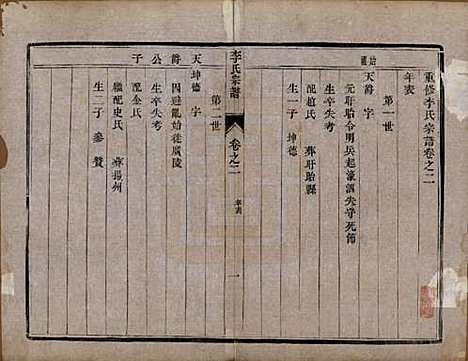 重修李氏宗譜卷之二
年表
第一世
始祖
天爵 字
元盱眙令明兵起濠泗失守死節
配趙氏 葬盱眙縣
生卒失考
生一子 坤德
李氏宗譜
卷之二
年表
一
第二世
天爵公子
坤德 字
因避亂始徙廣陵
生卒失考
配金氏
繼配史氏 葬揚州
生二子 參 贊